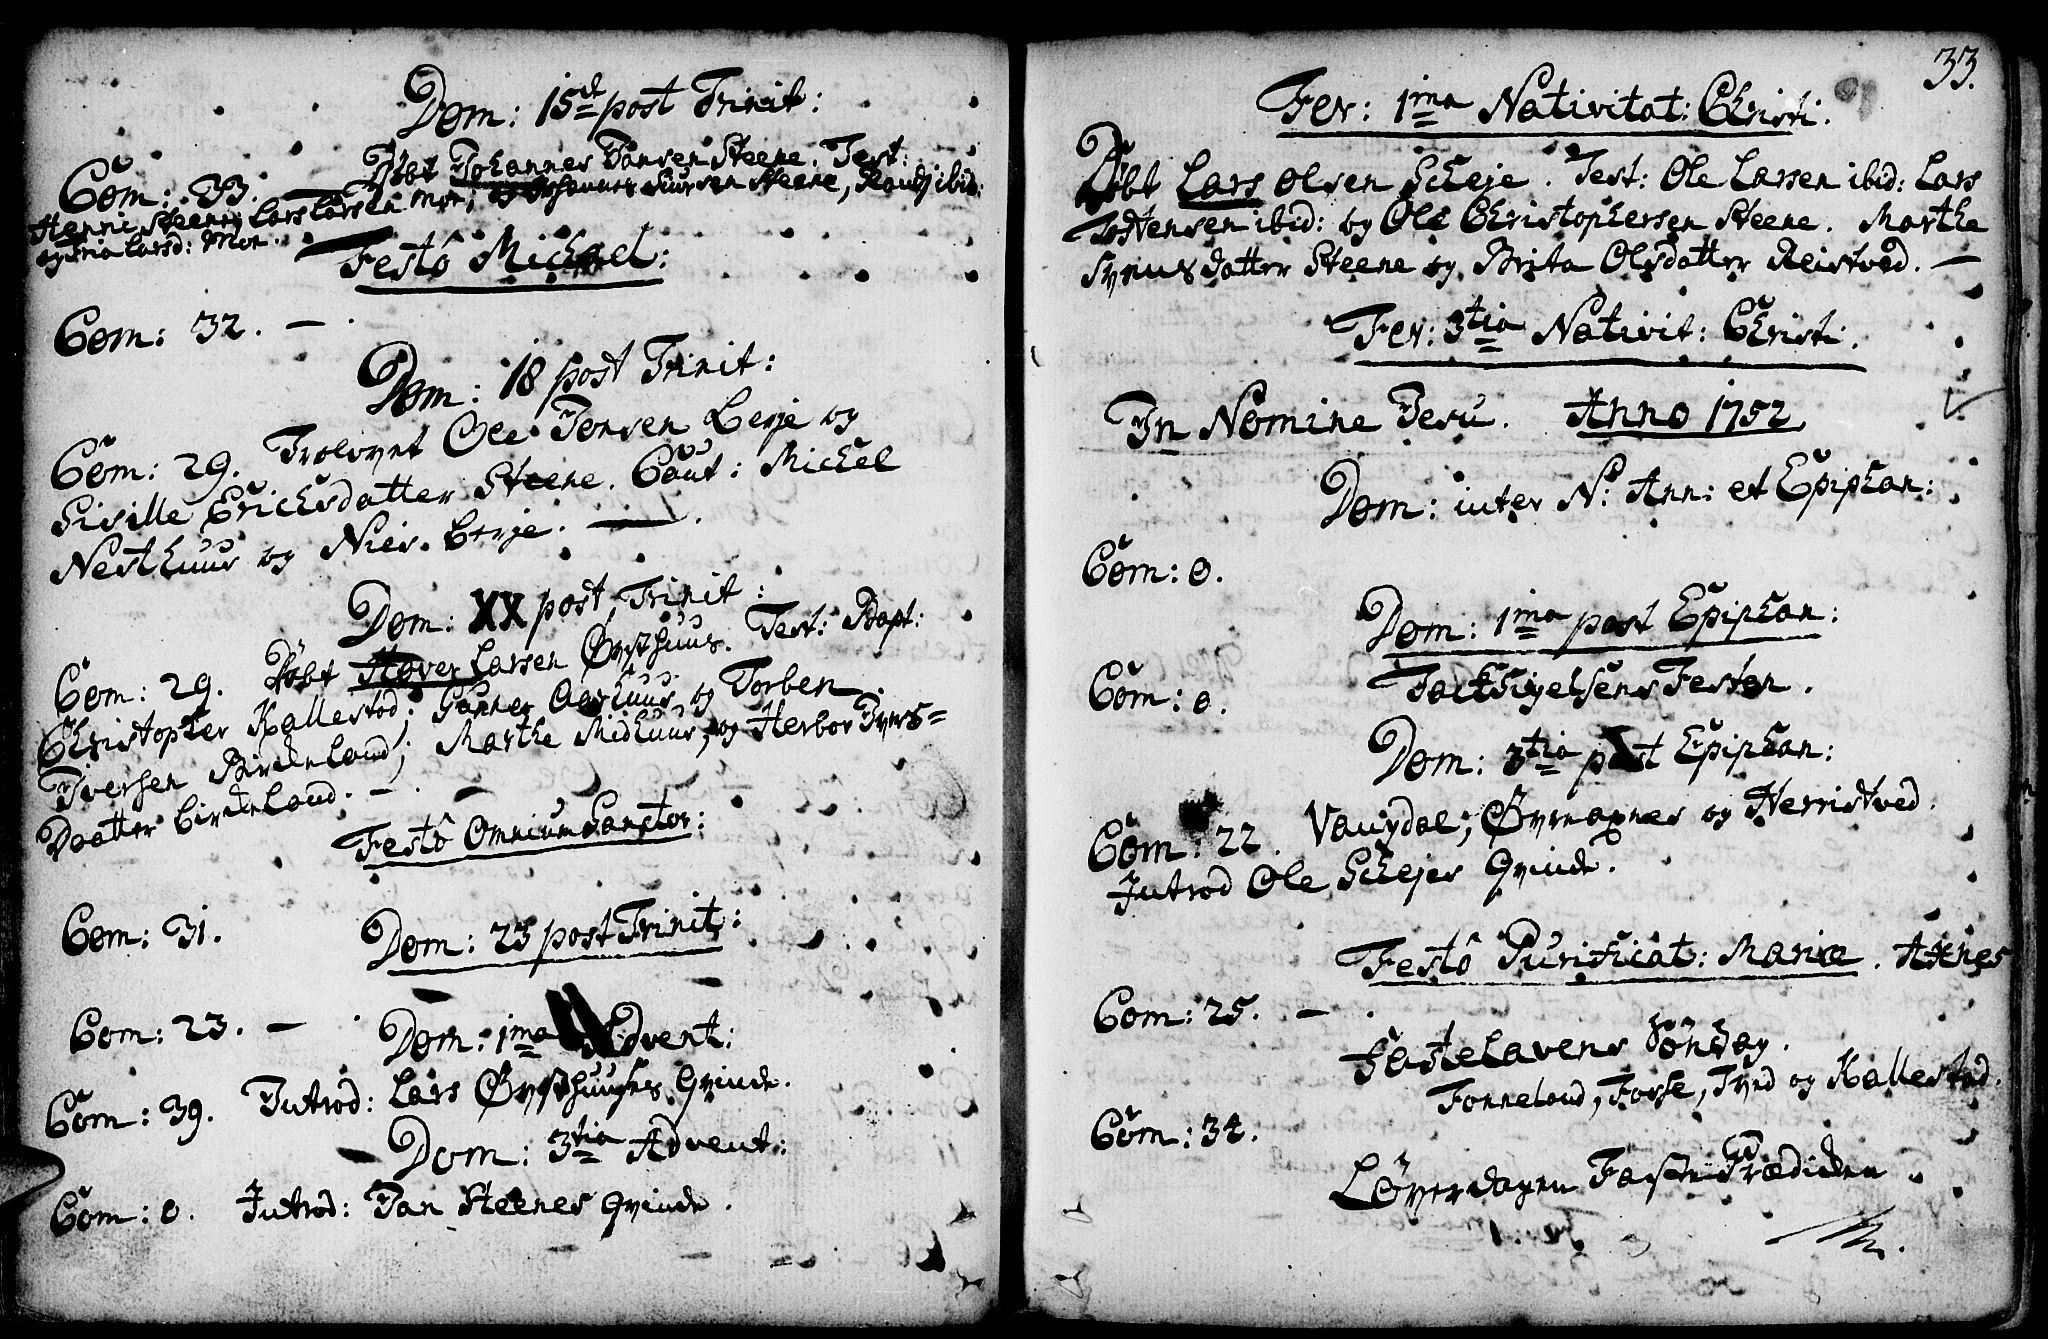 Dom: 15de post Trinit:
Com: 33. — Döbt Johannes Jansen Steene. Test:
Henni Steene, Lars Larsen Moe, og Johannes Siursen Steene, Randj ibid:
og Tria Larsd: Moe.
Festô Michael:
Com: 32. —
Dom: 18 post Trinit:
Com: 29. Trolovet Ole Jonsen Berje og
Siville Erichsdatter Steene. Caut: Michel
Nesthuus og Niels Berje. —
Dom: XX post Trinit:
Com: 29. Döbt Haver Larsen Øvsthuus. Test: Bapt:
Christopher Kallestad; Gunner Aarhuus og Torben
Iversen Birkeland; Marthe Midhuus, og Herbor Ivers=
Daatter Birkeland. —
Festô Omnium Sanctor:
Com: 31.
Dom: 23 post Trinit:
Com: 23. —
Dom: 1ma Advent:
Com: 39. Introd: Lars Øvsthuuses Qvinde.
Dom: 3tia Advent:
Com: 0. Introd: Jan Steenes Qvinde.
33.
Fer: 1ma Nativitat: Christi:
Döbt Lars Olsen Scheje. Test: Ole Larsen ibid: Lars
Tostensen ibid: og Ole Christophersen Steene. Marthe
Synnes datter Steene og Brita Olsdatter Reistved. —
Fer: 3tia Nativit: Christi.
In Nomine Jesu. Anno 1752
Dom: inter N: Ann: et Epiphan:
Com: 0.
Dom: 1ma post Epiphan:
Com: 0. Tacksigelsens Festen.
Dom: 3tia post Epiphan:
Com: 22. Vangdal, Øvrenaxnes og Herristved.
Introd Ole Schejes Qvinde.
Festô Purificat: Mariæ. Axnes
Com: 25. —
Fastelavens Søndag.
Fonneland, Fosse, Tved og Kallestad.
Com: 34.
Løverdagen Faste Prædicken